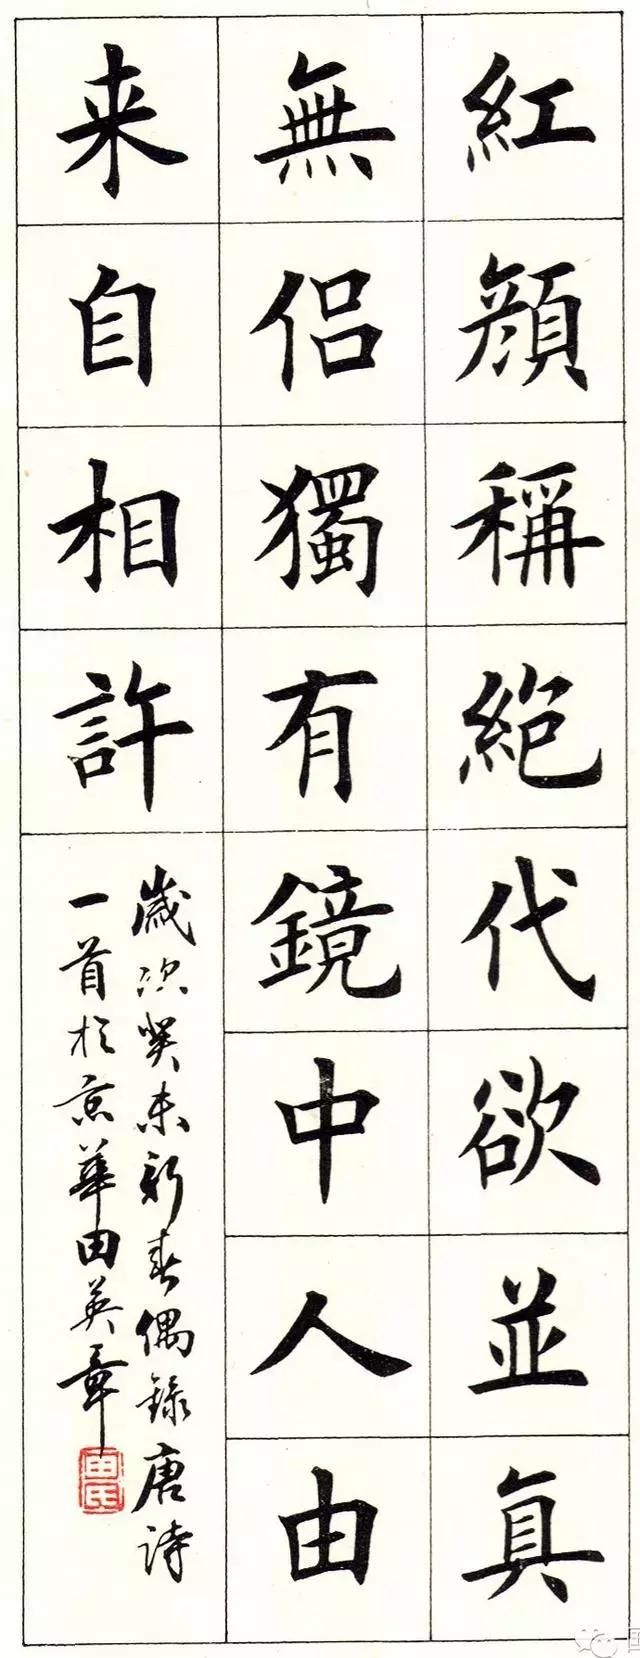 紅顔稱絕代欲並真
無侶獨有鏡中人由
来自相許
歲次癸未新春偶錄唐詩
一首於京華田英章
田氏
国